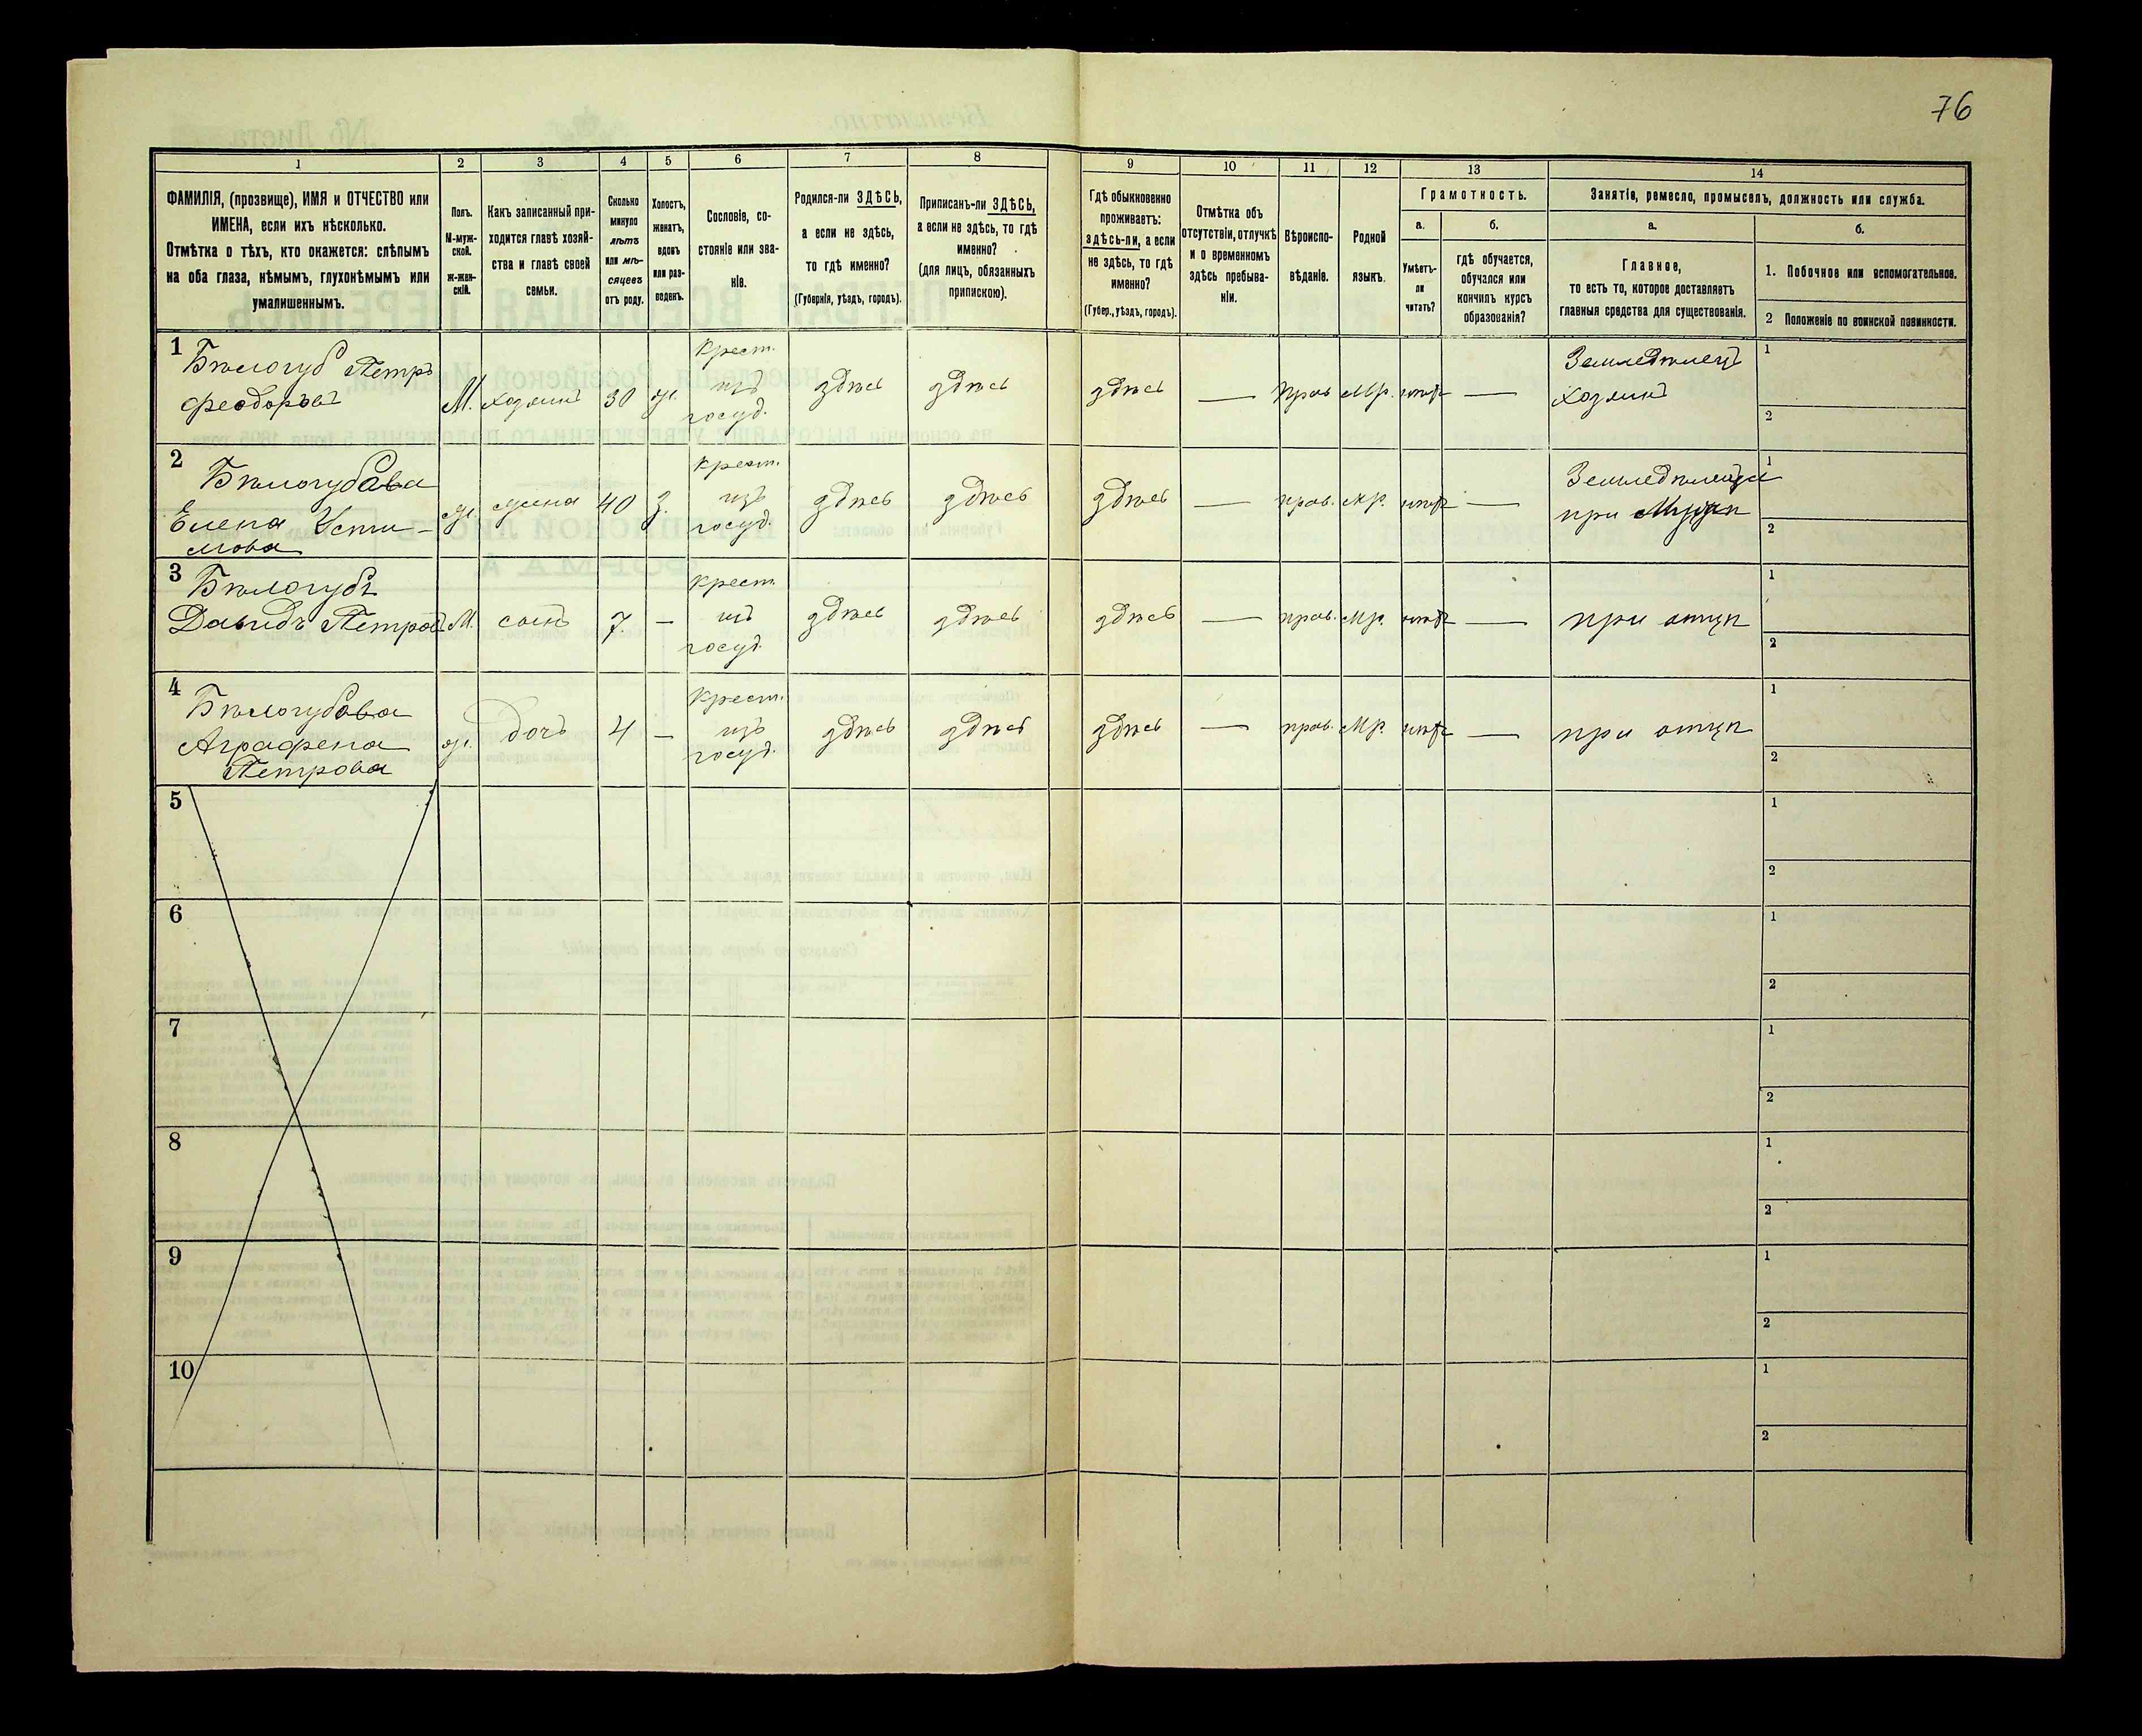 76
1 2 3 4 5 6 7 8 9 10 11 12 13 14
ФАМИЛІЯ, (прозвище), ИМЯ и ОТЧЕСТВО или
ИМЕНА, если ихъ нѣсколько.
Отмѣтка о тѣхъ, кто окажется: слѣпымъ
на оба глаза, нѣмымъ, глухонѣмымъ или
умалишеннымъ.
Полъ.
М-муж-
ской.
ж-жен-
скій.
Какъ записанный при-
ходится главѣ хозяй-
ства и главѣ своей
семьи.
Сколько
минуло
лѣтъ
или мѣ-
сяцевъ
отъ роду.
Холостъ,
женатъ,
вдовъ
или раз-
веденъ.
Сословіе, со-
стояніе или зва-
ніе.
Родился-ли ЗДѢСЬ,
а если не здѣсь,
то гдѣ именно?
(Губернія, уѣздъ, городъ).
Приписанъ-ли ЗДѢСЬ,
а если не здѣсь, то гдѣ
именно?
(для лицъ, обязанныхъ
припискою).
Гдѣ обыкновенно
проживаетъ:
здѣсь-ли, а если
не здѣсь, то гдѣ
именно?
(Губер., уѣздъ, городъ).
Отмѣтка объ
отсутствіи, отлучкѣ
и о временномъ
здѣсь пребыва-
ніи.
Вѣроиспо-
вѣданіе.
Родной
языкъ.
Грамотность.
а.
Умѣетъ-
ли
читать?
б.
гдѣ обучается,
обучался или
кончилъ курсъ
образованія?
Занятіе, ремесло, промыселъ, должность или служба.
а.
Главное,
то есть то, которое доставляетъ
главныя средства для существованія.
б.
1. Побочное или вспомогательное.
2 Положеніе по воинской повинности.
1
Бѣлогуб Петръ
Феодоръвъ
М. хозяинъ 30 ж.
Крест.
изъ
госуд.
здѣсь здѣсь здѣсь — Прав Мр. нѣт —
Земледѣлецъ
Хозяинъ
1
2
2
Бѣлогубова
Елена Усти-
мова
ж. жена 40 З.
крест.
изъ
госуд.
здѣсь здѣсь здѣсь — прав. мр. нѣт —
Земледѣлецъ
при Мужѣ
1
2
3
Бѣлогубъ
Давидъ Петров
М. сынъ 7. —
крест.
изъ
госуд.
здѣсь здѣсь здѣсь — прав. мр. нѣт — при отцѣ
1
2
4
Бѣлогубова
Аграфена
Петрова
ж. дочь 4 —
Крест.
изъ
госуд.
здѣсь здѣсь здѣсь — прав. Мр. нѣт — при отцѣ
1
2
5
1
2
6
1
2
7
1
2
8
1
2
9
1
2
10
1
2